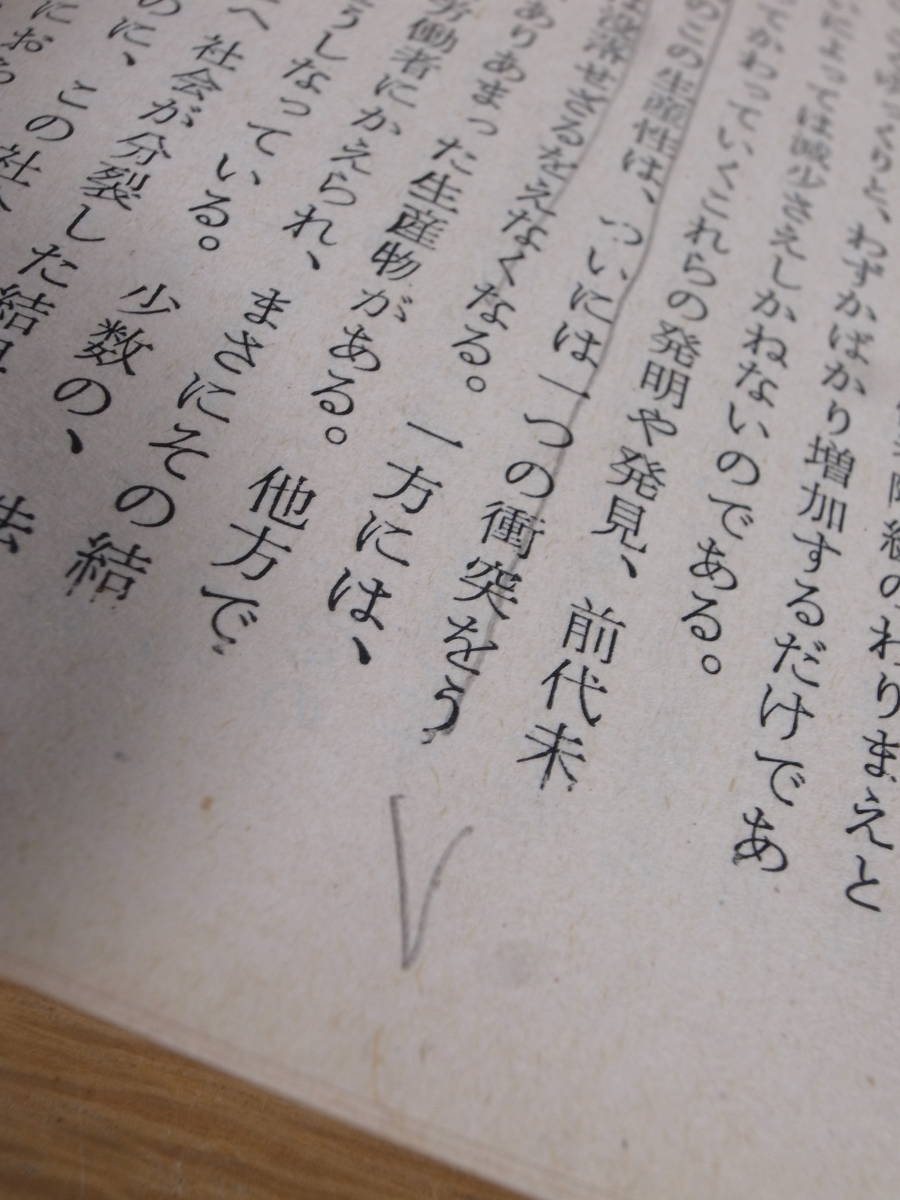 級のわりまえと
ゆっくりと、わずかばかり増加するだけであ
いによっては減少さえしかねないのである。
てかわっていくこれらの発明や発見、前代未
のこの生産性は、ついには一つの衝突をう
没落せざるをえなくなる。一方には、
ありあまった生産物がある。他方で
労働者にかえられ、まさにその結
うしなっている。少数の、法
へ社会が分裂した結果
のに、この社会
にお